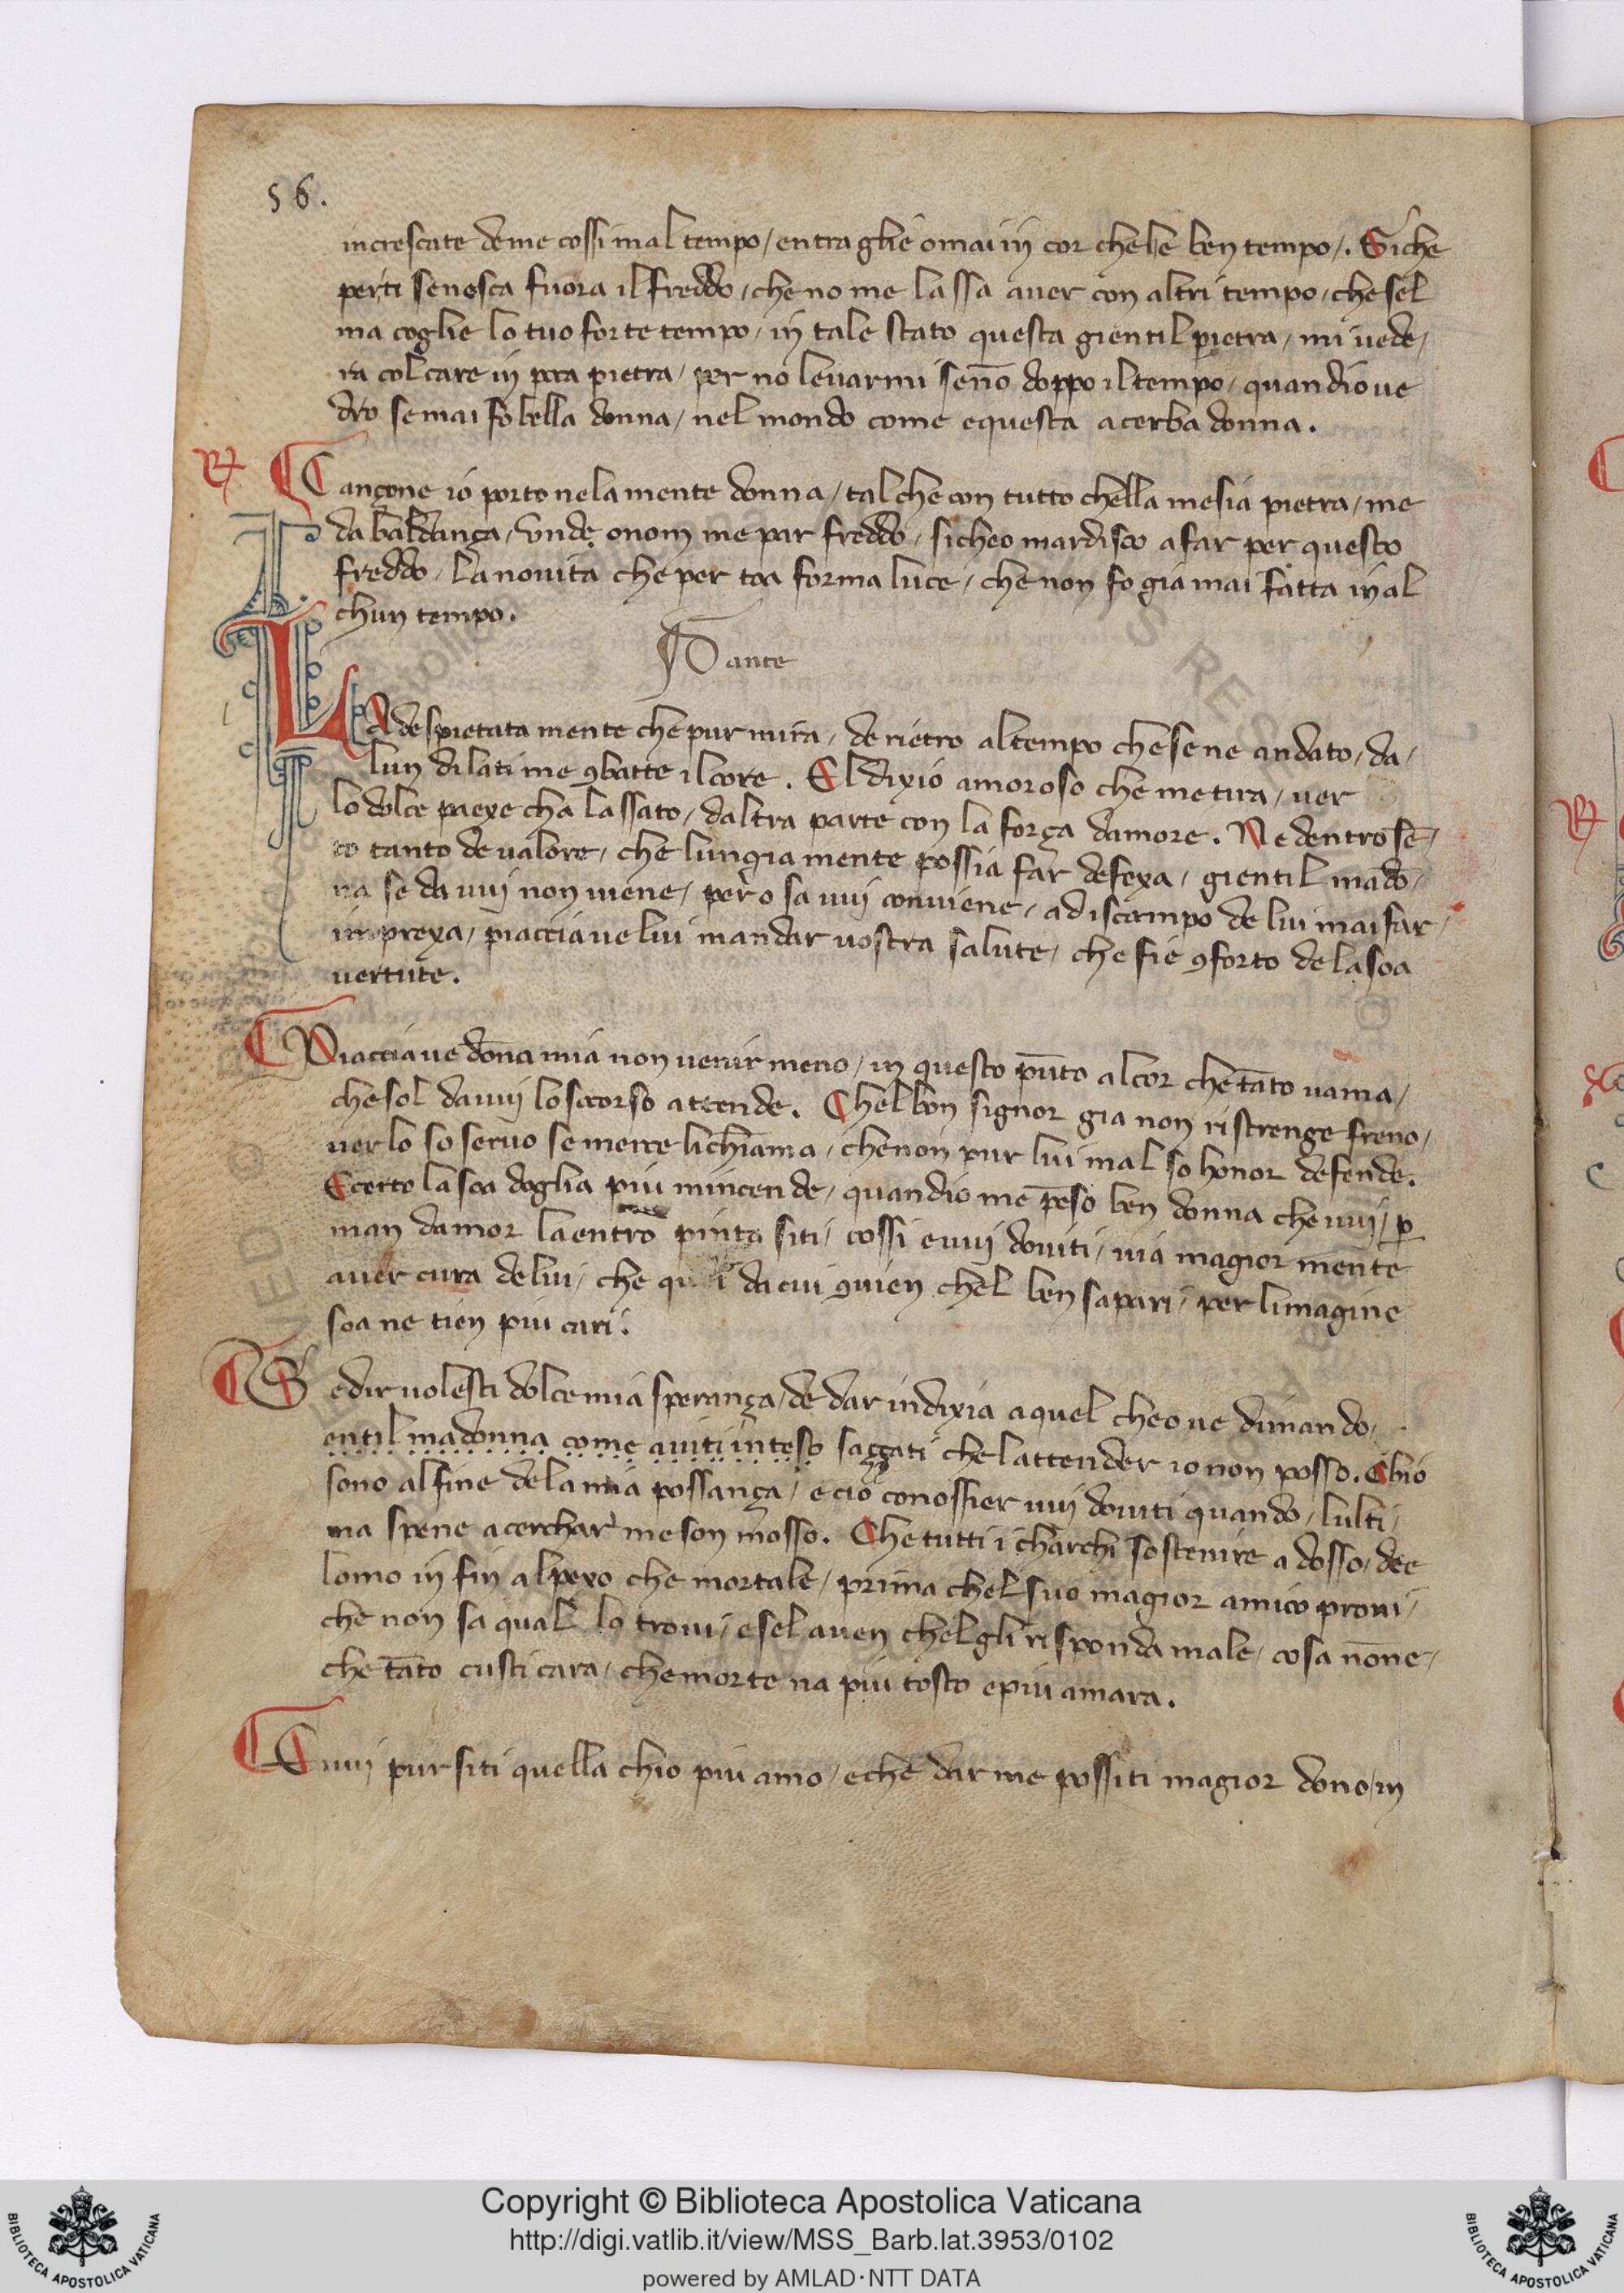 56.
increscate deme cossi mal tempo / entra glie omai in cor chebe ben tempo /. Siche
perti senesca fuora il freddo / che no me lassa auer con altri tempo / chesel
ma coglie lo tuo forte tempo / in tale stato questa gientil pietra / mi uede /
ra colcare in poca pietra / per no leuarmi seno doppo il tempo / quandio ue
dro semai fo bella donna / nel mondo come equesta acerba donna.
Rx
Cançone io porto nela mente donna / tal che con tutto chella mesia pietra / me
da baldança / unde onom me par freddo / sicheo mardisco a far per questo
freddo / la nouita che per toa forma luce / che non fo gia mai fatta in al
chun tempo.
Dante
LA despietata mente che pur mira / de rietro al tempo chesene andato / da /
lun di lati me ꝯbatte il core. El dixio amoroso che me tira / uer
lo dolce paexe cha lassato / daltra parte con la força damore. Ne dentro sē /
to tanto de ualore / che lungia mente possia far defexa / gientil mado /
na se da uuj non uiene / pero sa uuj conuiene / ad iscampo de lui mai far /
imprexa / piacciaue lui mandar uostra salute / che fie ꝯforto dela soa
uertute.
Piacciaue dōna mia non uenir meno / in questo pūto al cor che tāto uama /
che sol da uuj lo scorso attende. Chel bon signor gia non ristrenge freno /
uer lo so seruo se merce li chiama / che non pur lui mal so honor defende.
E certo la soa doglia piu mincende / quandio me pēso ben donna che uuj / ꝑ
man damor la entro pinta siti / cossi e uuj douiti / uia magior mente
auer cura de lui / che qu i da cui ꝯuien chel ben sapari / per limagine
soa ne tien piu cari.
Se dir uolesti dolce mia sperança / de dar indixia a quel cheo ue dimando /
entil madonna come auiti inteso saççati chel attender io non posso. Chio
sono al fine dela mia possança / e cio conossier uuj douiti quando / lulti /
ma spene a cerchar me son mosso. Che tutti i charchi sostenire a dosso / dee
lomo in fin al pexo che mortale / prima chel suo magior amico proui /
che non sa qual lo troui / e sel auen chel gli risponda male / cosa nōne /
che tāto custi cara / che morte na piu tosto e piu amara.
E uuj pur siti quella chio piu amo / e che dar me possiti magior dono / in
Copyright © Biblioteca Apostolica Vaticana
http://digi.vatlib.it/view/MSS_Barb.lat.3953/0102
powered by AMLAD·NTT DATA
BIBLIOTECA APOSTOLICA VATICANA
BIBLIOTECA APOSTOLICA VATICANA